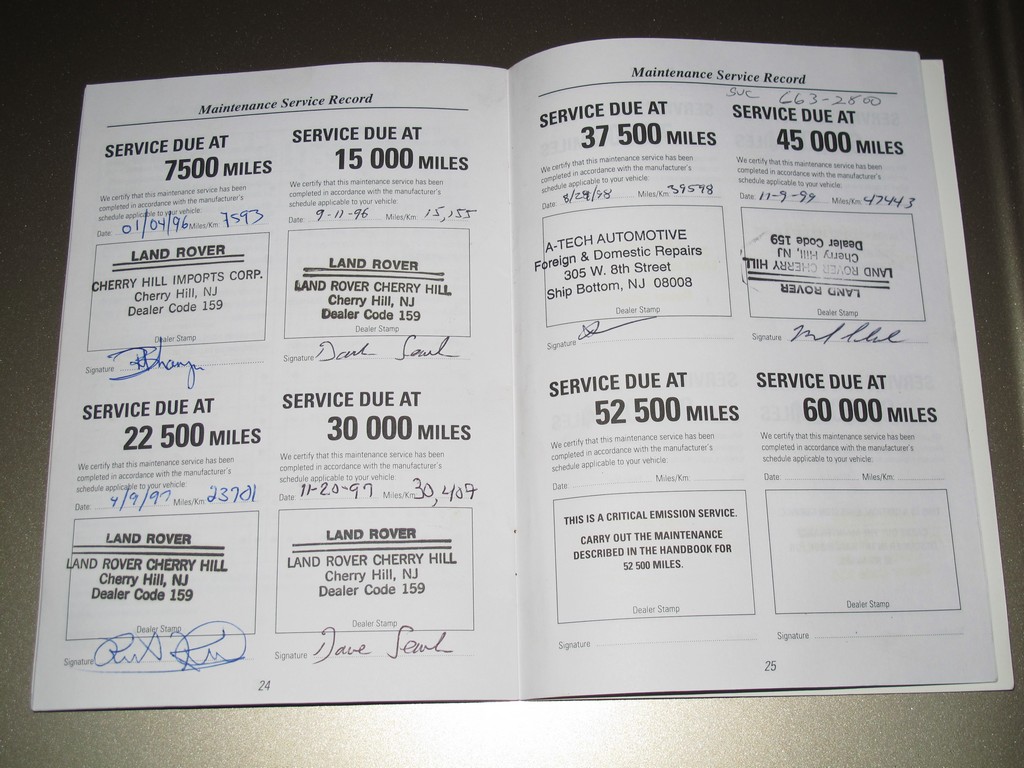 Maintenance Service Record
SERVICE DUE AT
7500 MILES
We certify that this maintenance service has been
completed in accordance with the manufacturer's
schedule applicable to your vehicle:
Date: 01/04/96 Miles/Km: 7593
LAND ROVER
CHERRY HILL IMPORTS CORP.
Cherry Hill, NJ
Dealer Code 159
Dealer Stamp
Signature
SERVICE DUE AT
15 000 MILES
We certify that this maintenance service has been
completed in accordance with the manufacturer's
schedule applicable to your vehicle:
Date: 9-11-96 Miles/Km: 15,155
LAND ROVER
LAND ROVER CHERRY HILL
Cherry Hill, NJ
Dealer Code 159
Dealer Stamp
Signature
SERVICE DUE AT
22 500 MILES
We certify that this maintenance service has been
completed in accordance with the manufacturer's
schedule applicable to your vehicle:
Date: 4/9/97 Miles/Km: 23701
LAND ROVER
LAND ROVER CHERRY HILL
Cherry Hill, NJ
Dealer Code 159
Dealer Stamp
Signature
SERVICE DUE AT
30 000 MILES
We certify that this maintenance service has been
completed in accordance with the manufacturer's
schedule applicable to your vehicle:
Date: 11-20-97 Miles/Km: 30,407
LAND ROVER
LAND ROVER CHERRY HILL
Cherry Hill, NJ
Dealer Code 159
Dealer Stamp
Signature Dave
24
Maintenance Service Record
SVC 663-2800
SERVICE DUE AT
37 500 MILES
We certify that this maintenance service has been
completed in accordance with the manufacturer's
schedule applicable to your vehicle:
Date: 8/29/98 Miles/Km: 39598
A-TECH AUTOMOTIVE
Foreign & Domestic Repairs
305 W. 8th Street
Ship Bottom, NJ 08008
Dealer Stamp
Signature
SERVICE DUE AT
45 000 MILES
We certify that this maintenance service has been
completed in accordance with the manufacturer's
schedule applicable to your vehicle:
Date: 11-9-99 Miles/Km: 47443
LAND ROVER
LAND ROVER CHERRY HILL
Cherry Hill, NJ
Dealer Code 159
Dealer Stamp
Signature
SERVICE DUE AT
52 500 MILES
We certify that this maintenance service has been
completed in accordance with the manufacturer's
schedule applicable to your vehicle:
Date Miles/Km:
THIS IS A CRITICAL EMISSION SERVICE.
CARRY OUT THE MAINTENANCE
DESCRIBED IN THE HANDBOOK FOR
52 500 MILES.
Dealer Stamp
Signature
SERVICE DUE AT
60 000 MILES
We certify that this maintenance service has been
completed in accordance with the manufacturer's
schedule applicable to your vehicle:
Date: Miles/Km:
Dealer Stamp
Signature
25